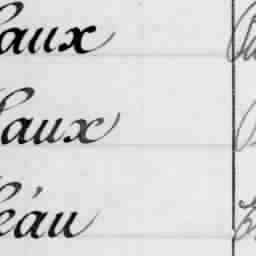 aux
aux
éau